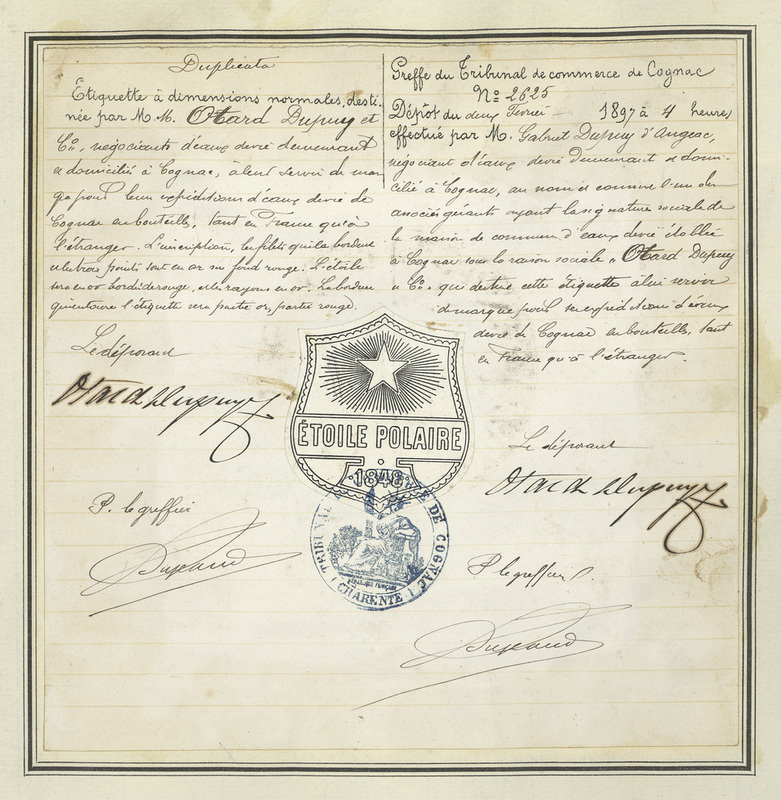 Duplicata
Étiquette à dimensions normales, desti-
née par M.M. Otard Dupuy et
Co, négociants d'eaux de vie demeurant
et domiciliés à Cognac, à leur servir de mar
que pour leurs expéditions d'eaux de vie de
Cognac en bouteille, tant en France qu'à
l'étranger. L'inscription, les filets qui la bordent
et les trois points sont en or sur fond rouge. L'étoile
sera en or bordé de rouge, et les rayons en or. La bordure
qui entoure l'étiquette sera partie or, partie rouge.
Le déposant
Otard Dupuy
P. le greffier
Greffe du Tribunal de commerce de Cognac
No 2625
Dépôt du deux Février 1897 à 4 heures
effectué par M. Gabriel Dupuy d'Angeac,
négociant d'eaux de vie demeurant et domi-
cilié à Cognac, au nom et comme l'un des
associés gérants ayant la signature sociale de
la maison de commerce d'eaux de vie établie
à Cognac sous la raison sociale "Otard Dupuy
& Co. qui destine cette étiquette à lui servir
de marque pour ses expéditions d'eaux
de vie de Cognac en bouteille, tant
en France qu'à l'étranger.
Le déposant
Otard Dupuy
P. le greffier
ÉTOILE POLAIRE
1848
TRIBUNAL DE COGNAC
(CHARENTE)